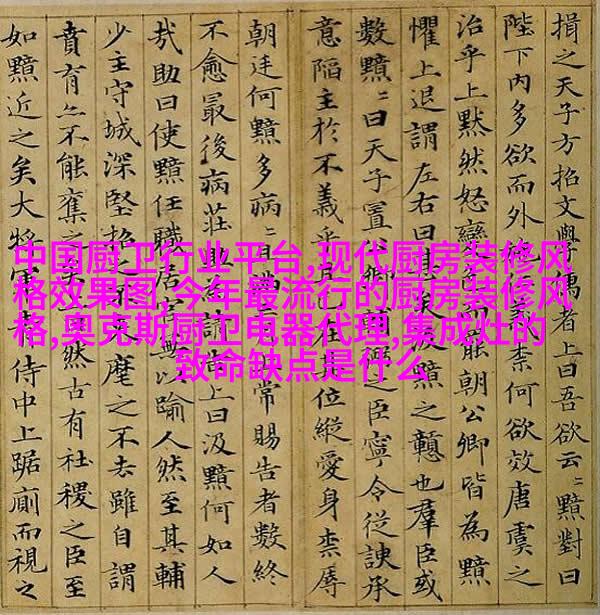 揖之天子方招文學儒者上曰吾欲云〻黯對曰
陛下内多欲而外義柰何欲效唐虞之
治乎上黙然怒變而罷朝公卿皆為黯
懼上退謂左右曰甚矣黯之戇也羣臣或
數黯〻曰天子置公卿之臣寧令從諛承
意陷主於不義乎且已在其位縱愛身柰辱
朝廷何黯多病〻且滿上常賜告者數終
不愈最後病莊助為請告上曰汲黯何如人
㢤助曰使黯任職居官無以踰人然至其輔
少主守城深堅招之麾之不去雖自謂
賁育亦不能奪之然古有社稷之臣至
如黯近之矣大將軍青侍中上踞廁而視之
中国厨卫行业平台,现代厨房装修风
格效果图,今年最流行的厨房装修风
格,奥克斯厨卫电器代理,集成灶的
致命缺点是什么